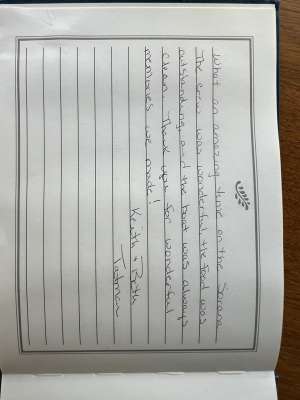 What an amazing time on the Sarana
The crew was wonderful, the food was
outstanding, and the boat was always
clean. Thank you for wonderful
memories we made!
Keith + Beth